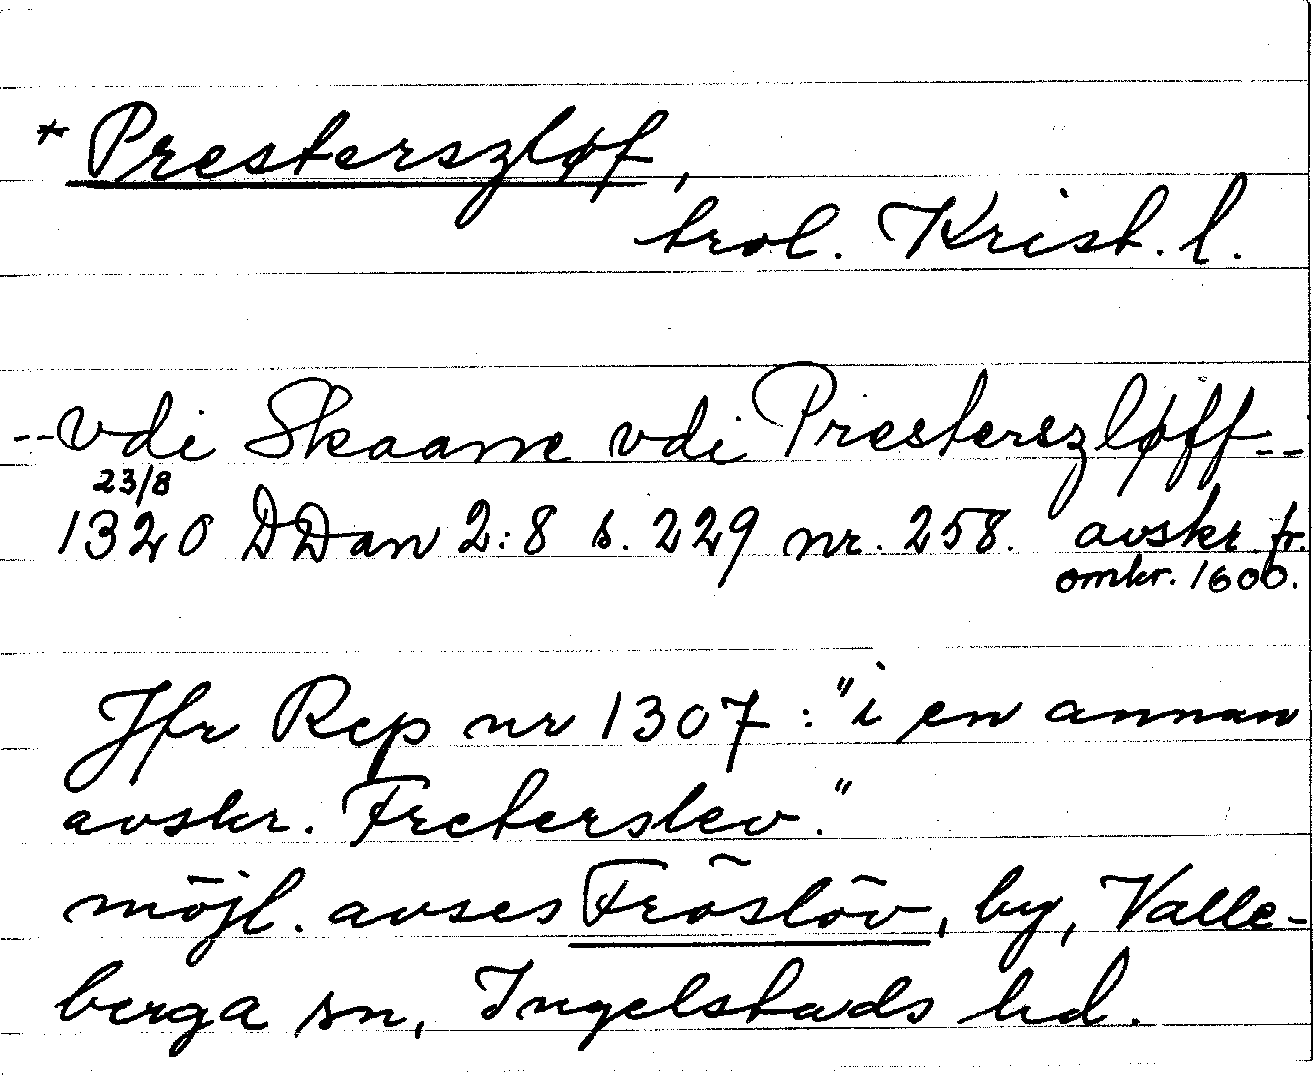 * Presterszløf,
trol. Krist. l.
-- vdi Skaane vdi Presterszløff --
23/8
1320 DDan 2:8 s. 229 nr. 258. avskr. fr.
omkr. 1600.
Jfr Rep nr 1307 : "i en annan
avskr. Freterslev."
möjl. avses Fröslöv, by, Valle-
berga sn, Ingelstads hd.